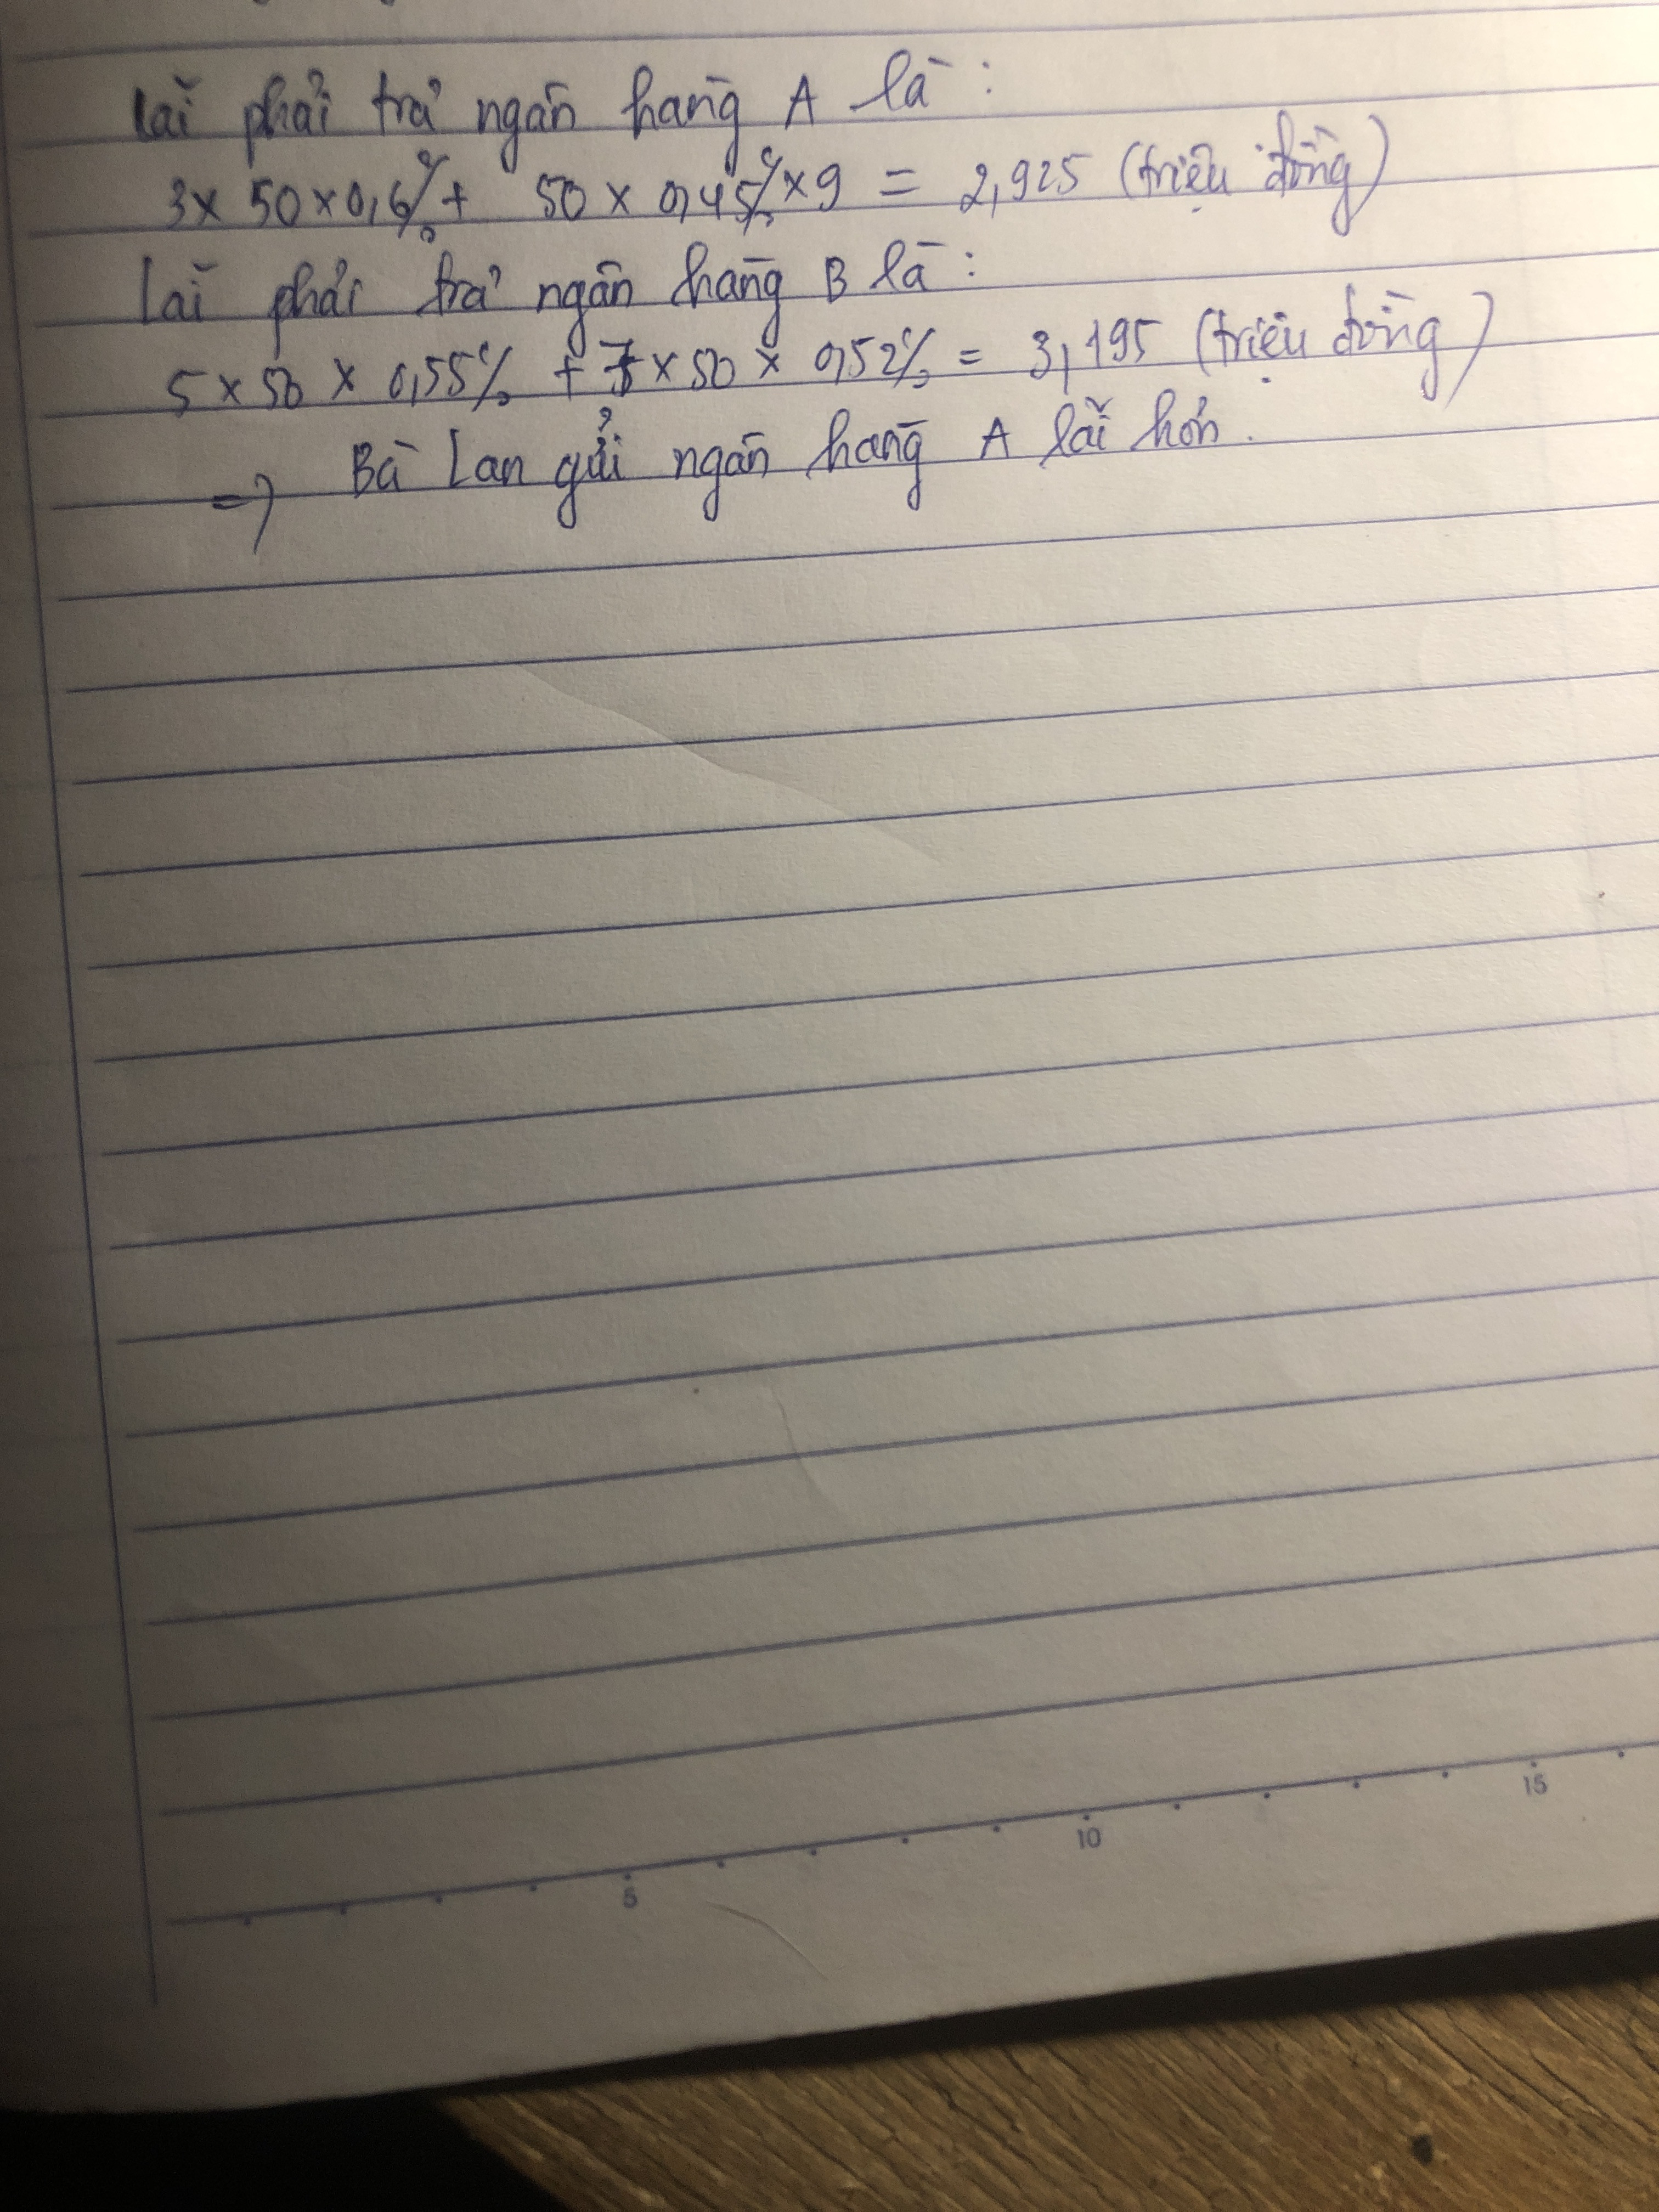 Lãi phải trả ngân hàng A là:
3 x 50 x 0,6% + 50 x 0,45% x 9 = 2,925 (triệu đồng)
Lãi phải trả ngân hàng B là:
5 x 50 x 0,55% + 7 x 50 x 0,52% = 3,195 (triệu đồng)
=> Bà Lan gửi ngân hàng A lãi hơn.
5 10 15